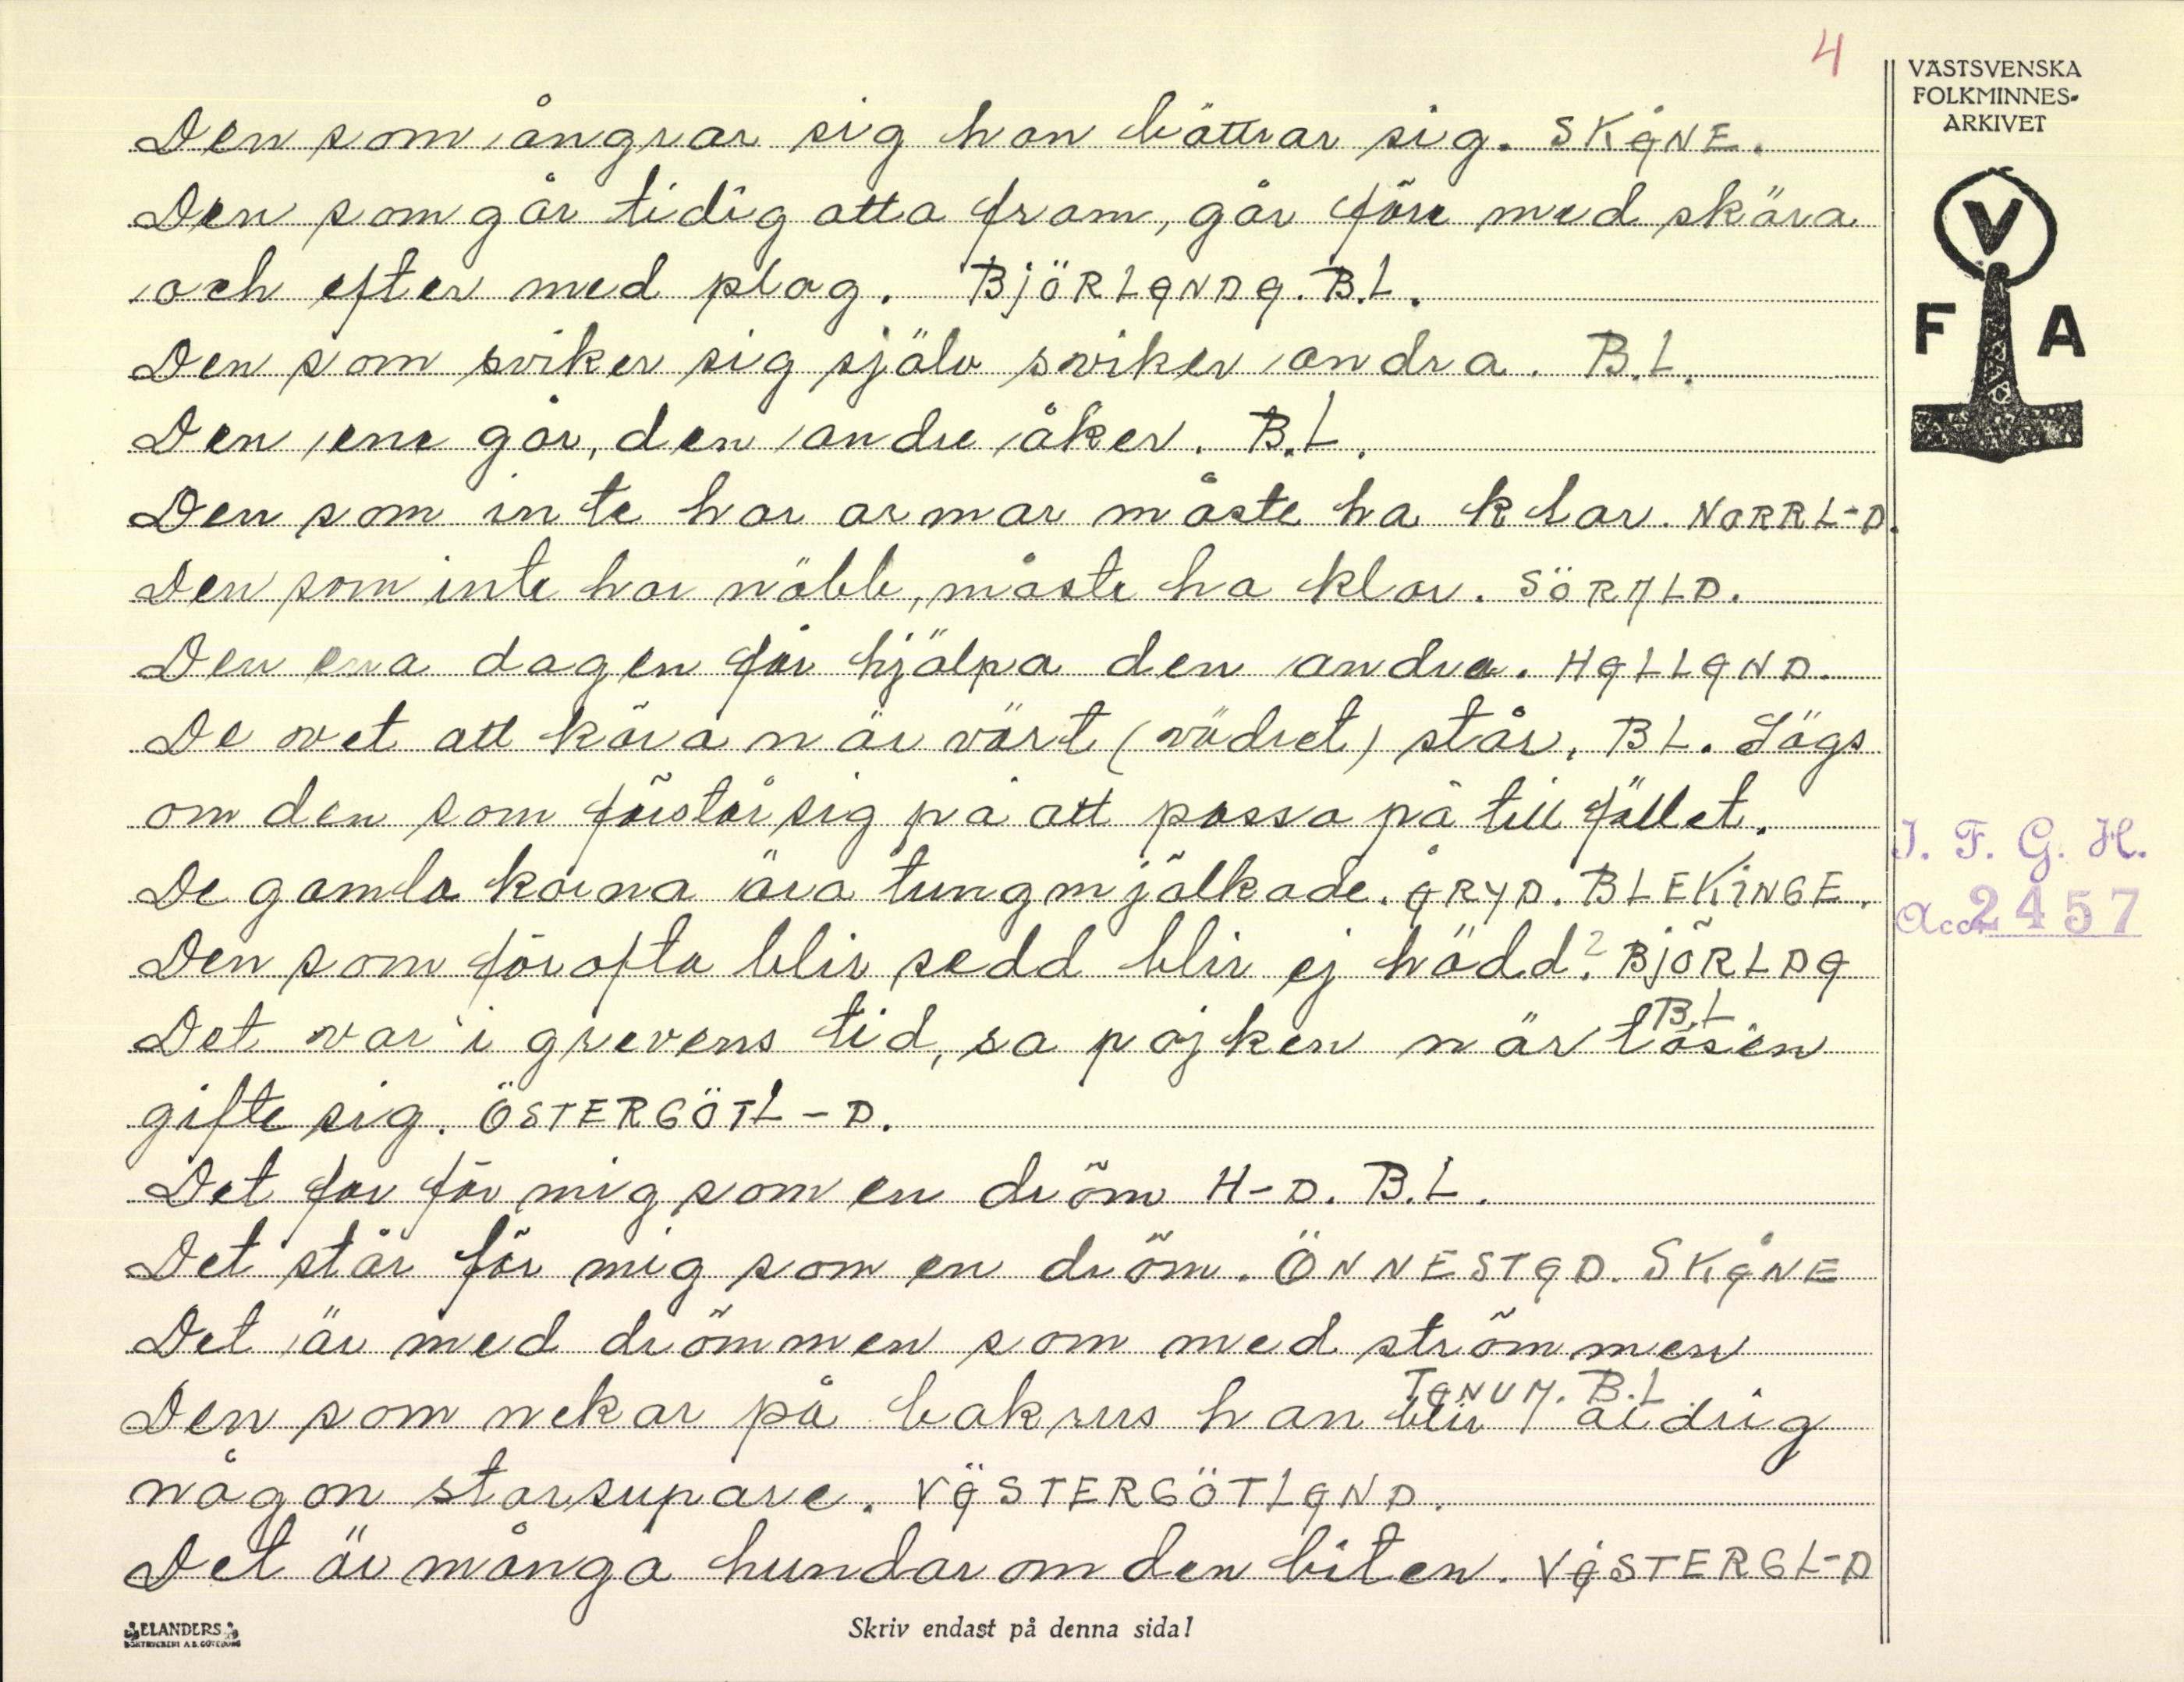 4
VÄSTSVENSKA
FOLKMINNES-
ARKIVET
V
F A
Den som ångrar sig han bättrar sig. SKÅNE.
Den som går tidig atta fram, går före med skära
och efter med plog. BJÖRLANDA. B.L.
Den som sviker sig själv sviker andra. B.L.
Den ene går, den andre åker. B.L.
Den som inte har armar måste ha klor. NORRL-D.
Den som inte har näbb, måste ha klor. SÖRMLD.
Den ena dagen får hjälpa den andra. HALLAND.
De vet att köra när värt (vädret) står. BL. Sägs
om den som förstår sig på att passa på tillfället.
De gamla korna ära tungmjölkade. ÅRYD. BLEKINGE.
Den som för ofta blir sedd blir ej hädd? BJÖRLDA
B.L
Det var i grevens tid, sa pojken när tösen
gifte sig. ÖSTERGÖTL-D.
Det far för mig som en dröm H-D. B.L.
Det står för mig som en dröm. ÖNNESTAD. SKÅNE
Det är med drömmen som med strömmen
TANUM. B.L
Den som nekar på bakrus han blir aldrig
någon storsupare. VÄSTERGÖTLAND.
Det är många hundar om den biten. VÄSTERGL-D
I. F. G. H.
Acc. 2457
ELANDERS
BOKTRYCKERI A.B. GÖTEBORG
Skriv endast på denna sida!